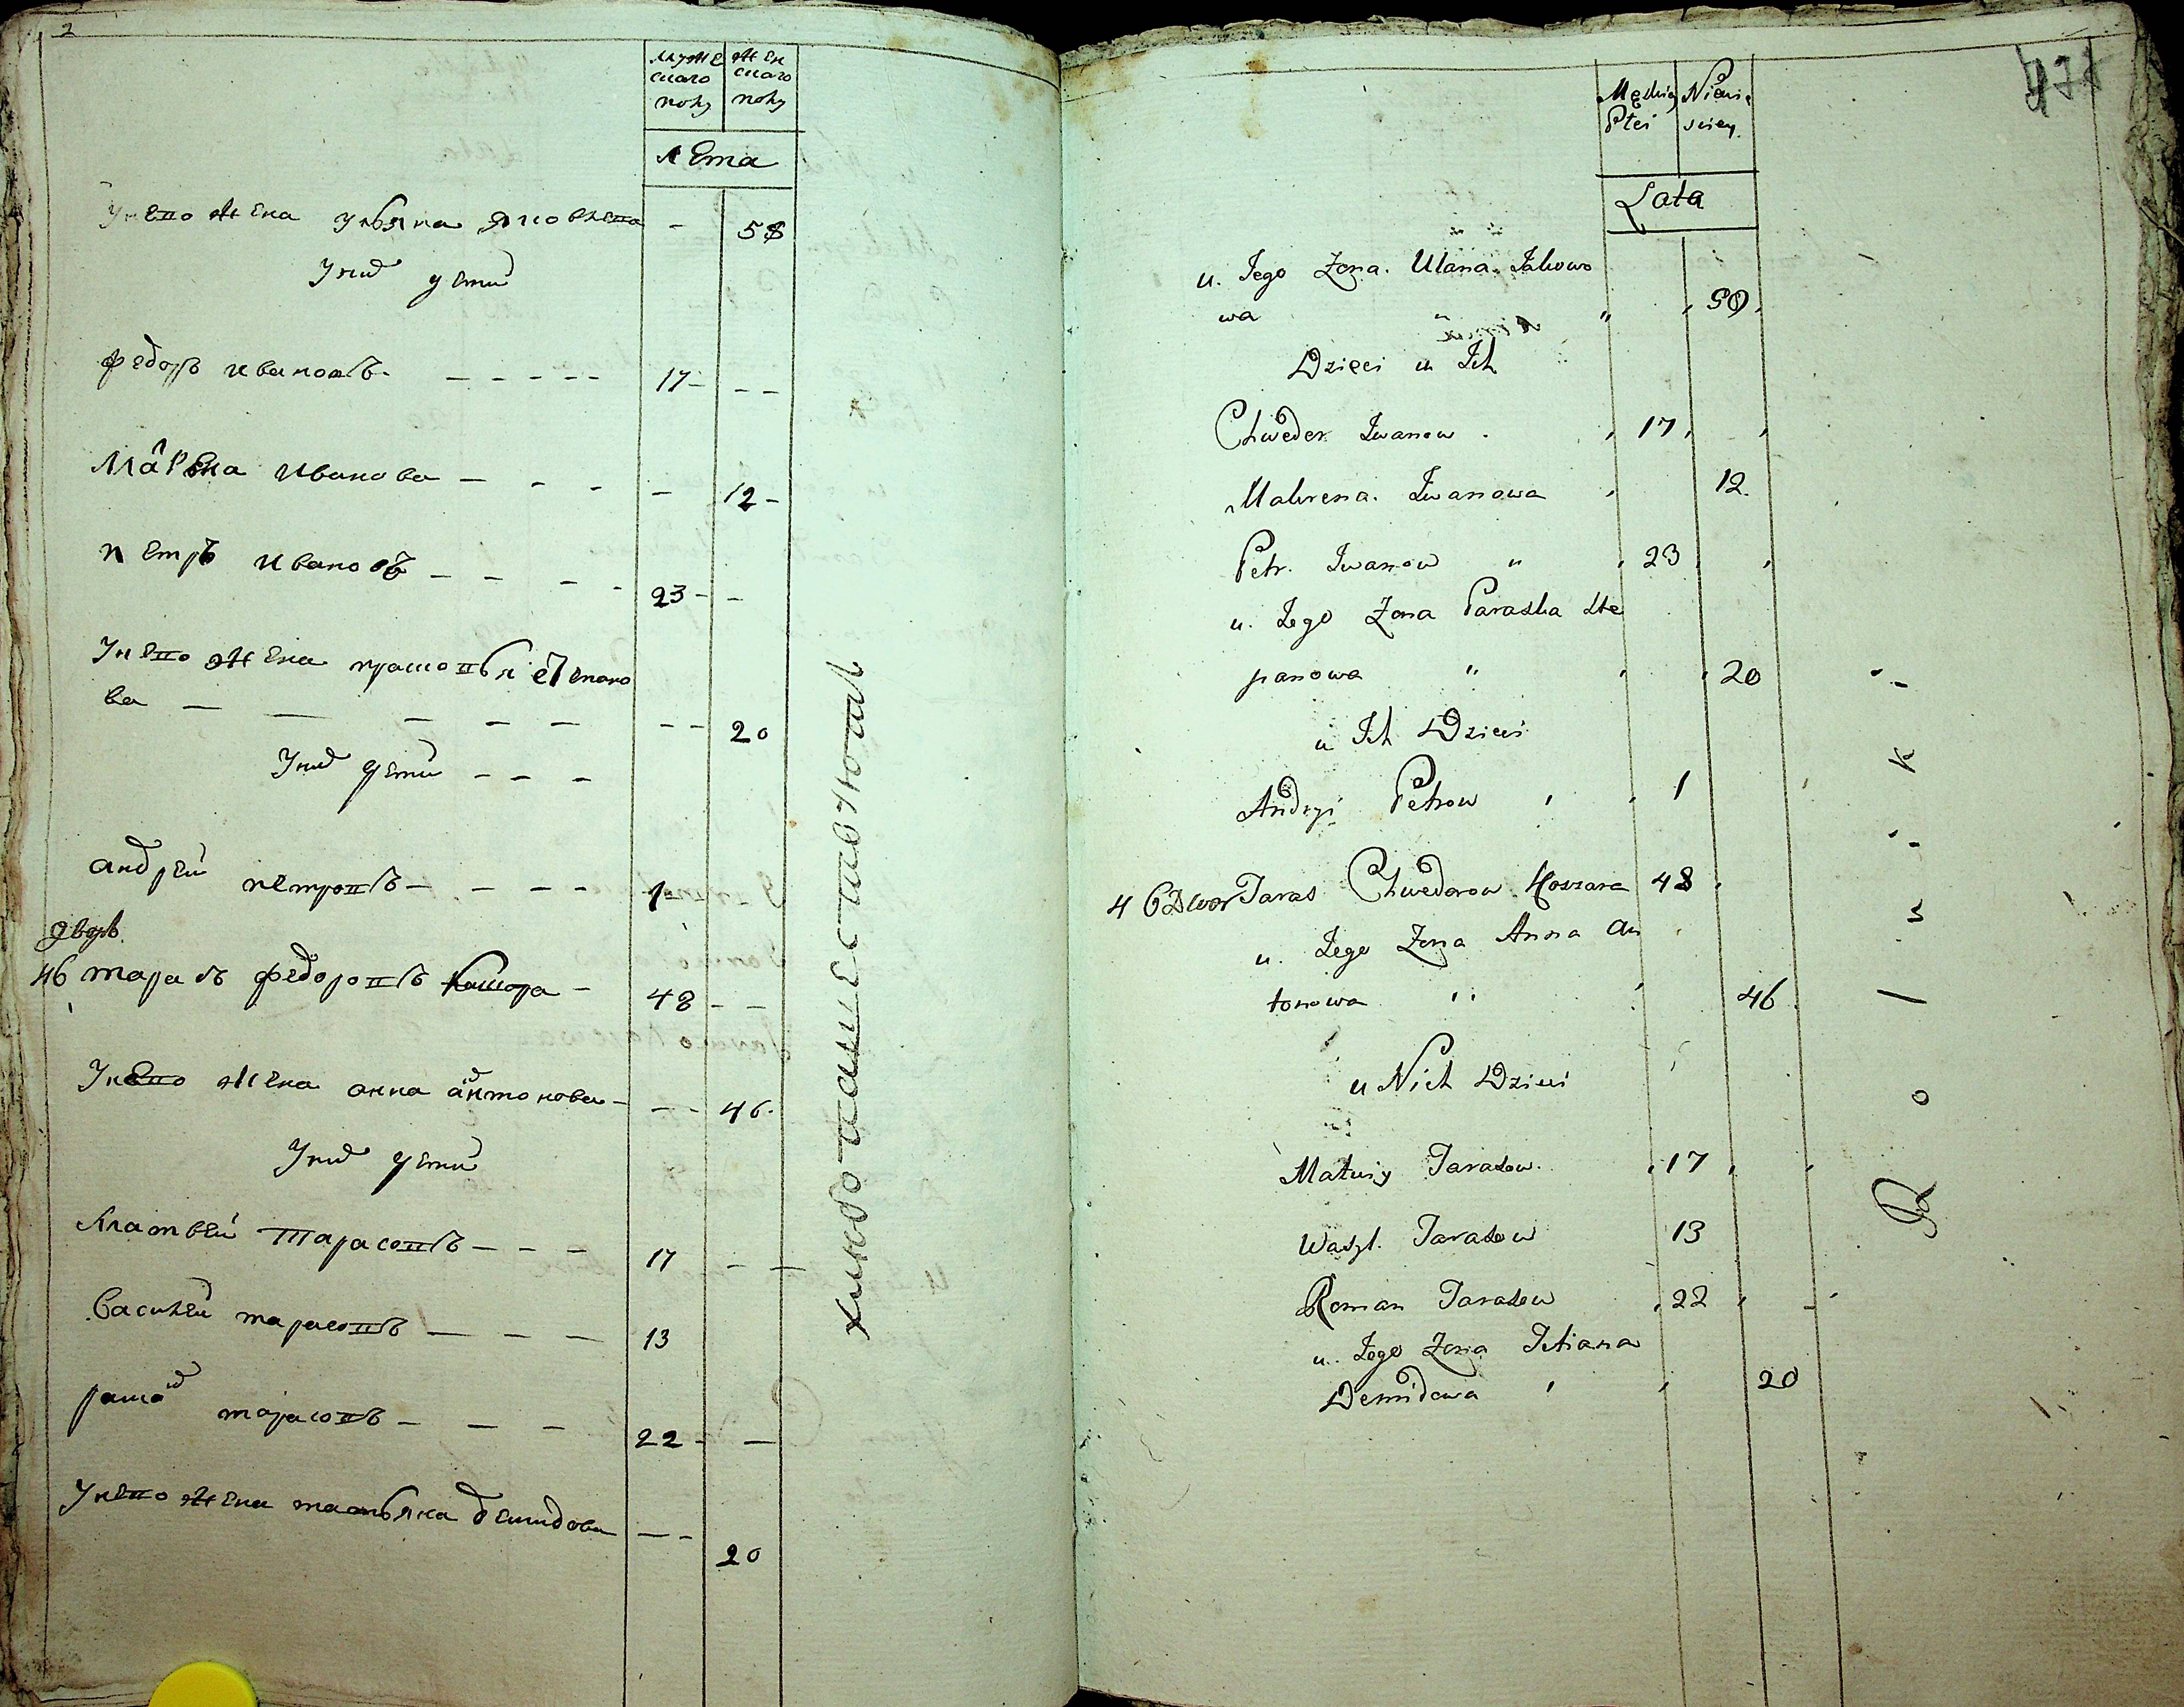 2
мужескаго полу
женскаго полу
лета
У него жена ульяна яковлева - 58
У них дети
федоръ ивановъ - - - - - 17 - - -
Маврена иванова - - - - 12 -
петръ ивановъ - - - - 23 - -
У него жена прасковья степано
ва - - - - - - - 20
У них дети - - -
андрей петровъ - - - - 1
дворъ
46 тарасъ федоровъ кашара - 48 - -
У него жена анна антонова - - - 46.
У них дети
Матвей Тарасовъ - - - 17 - -
Василей тарасовъ - - - 13
раман тарасовъ - - - 22 - -
У него жена татьяна демидова - - 20
Męskiey Płci
Niewieściey
Lata
u. Jego Zona. Ulana. Jakowo
wa " " 50
Dzieci u Ich
Chweder Iwanow . 17
Mawrena. Iwanowa 12.
Petr. Iwanow " 23
u. Jego Zona Paraska Ste
panowa " 20
u Ich Dzieci
Andryi Petrow 1
46 Dwor Taras Chwedorow Koszara 48
u. Jego Zona Anna An
tonowa " 46
u Nich Dzieci
Matwiy Tarasow. 17
Wasyl. Tarasow 13
Roman Tarasow 22
u. Jego Zona Tetiana
Demidowa 20